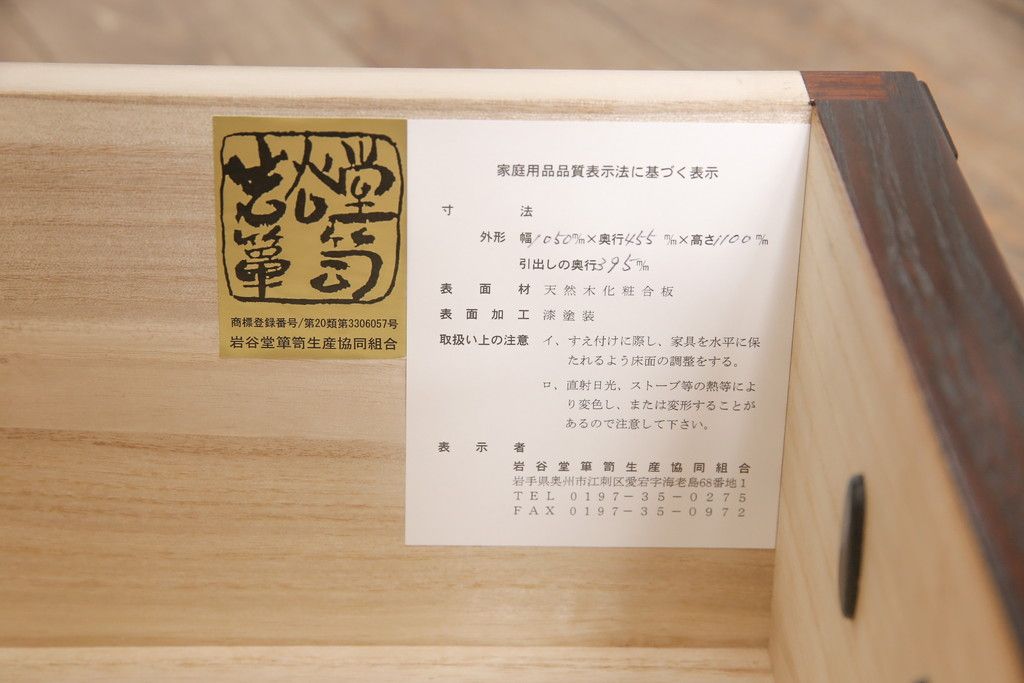 岩谷堂
簞笥
商標登録番号/第20類第3306057号
岩谷堂簞笥生産協同組合
家庭用品品質表示法に基づく表示
寸法
外形 幅1050㎜×奥行455㎜×高さ1100㎜
引出しの奥行395㎜
表面材 天然木化粧合板
表面加工 漆塗装
取扱い上の注意 イ、すえ付けに際し、家具を水平に保
たれるよう床面の調整をする。
ロ、直射日光、ストーブ等の熱等によ
り変色し、または変形することが
あるので注意して下さい。
表示者
岩谷堂簞笥生産協同組合
岩手県奥州市江刺区愛宕字海老島68番地1
TEL 0197-35-0275
FAX 0197-35-0972